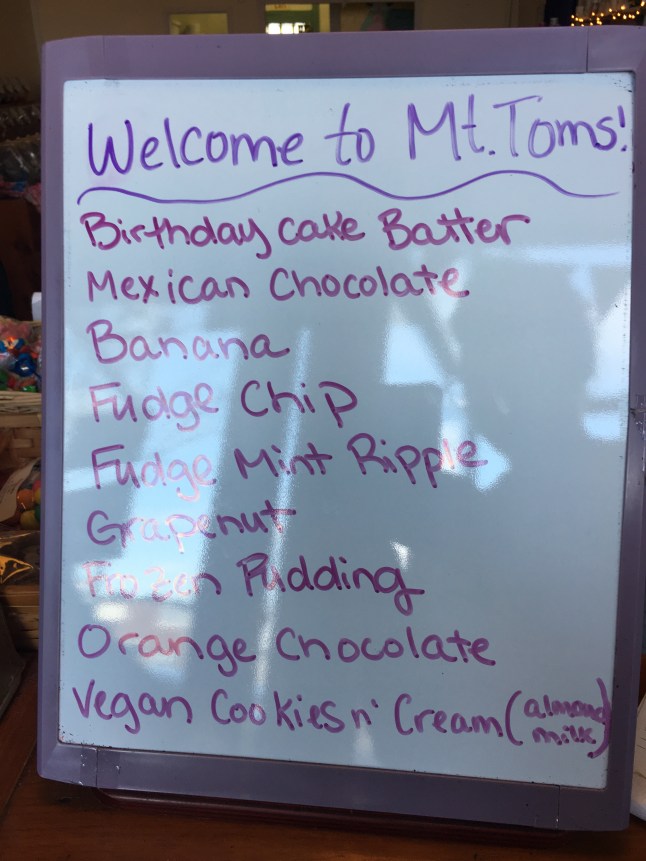 Welcome to Mt. Toms!
Birthday cake Batter
Mexican Chocolate
Banana
Fudge Chip
Fudge Mint Ripple
Grapenut
Frozen Pudding
Orange Chocolate
Vegan Cookies n' Cream (almond milk)